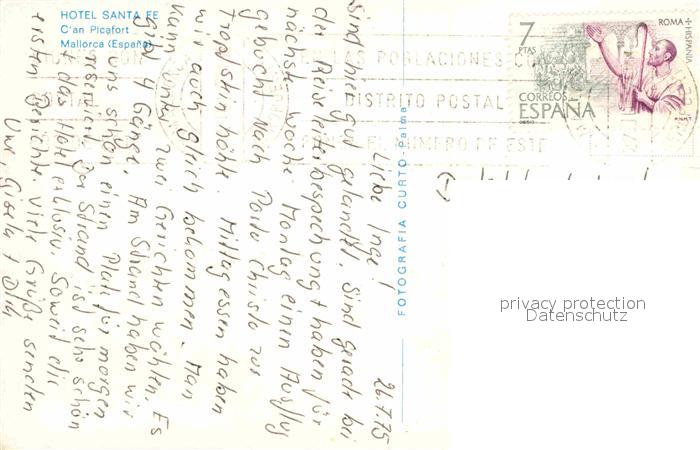 HOTEL SANTA FE
C'an Picafort
Mallorca (España)
7
PTAS
ROMA + HISPANIA
CORREOS
ESPAÑA
LAS POBLACIONES CON
DISTRITO POSTAL
EL NUMERO DE ESTE
FOTOGRAFIA CURTO-Palma
privacy protection
Datenschutz
26.7.75
Liebe Inge!
Sind hier gut gelandet. Sind gerade bei
der Reiseleiterbesprechung + haben für
nächste Woche Montag einen Ausflug
gebucht. Nach Porto Christo zur
Tropfstein höhle. Mittagessen haben
wir auch gleich bekommen. Man
kann unter zwei Gerichten wählen. Es
gibt 4 Gänge. Am Strand haben wir
uns schon einen Platz für morgen
reserviert. Der Strand ist sehr schön
+ das Hotel exklusiv. Soweit die
ersten Berichte. Viele Grüße senden
Uwe, Gisela + Dirk